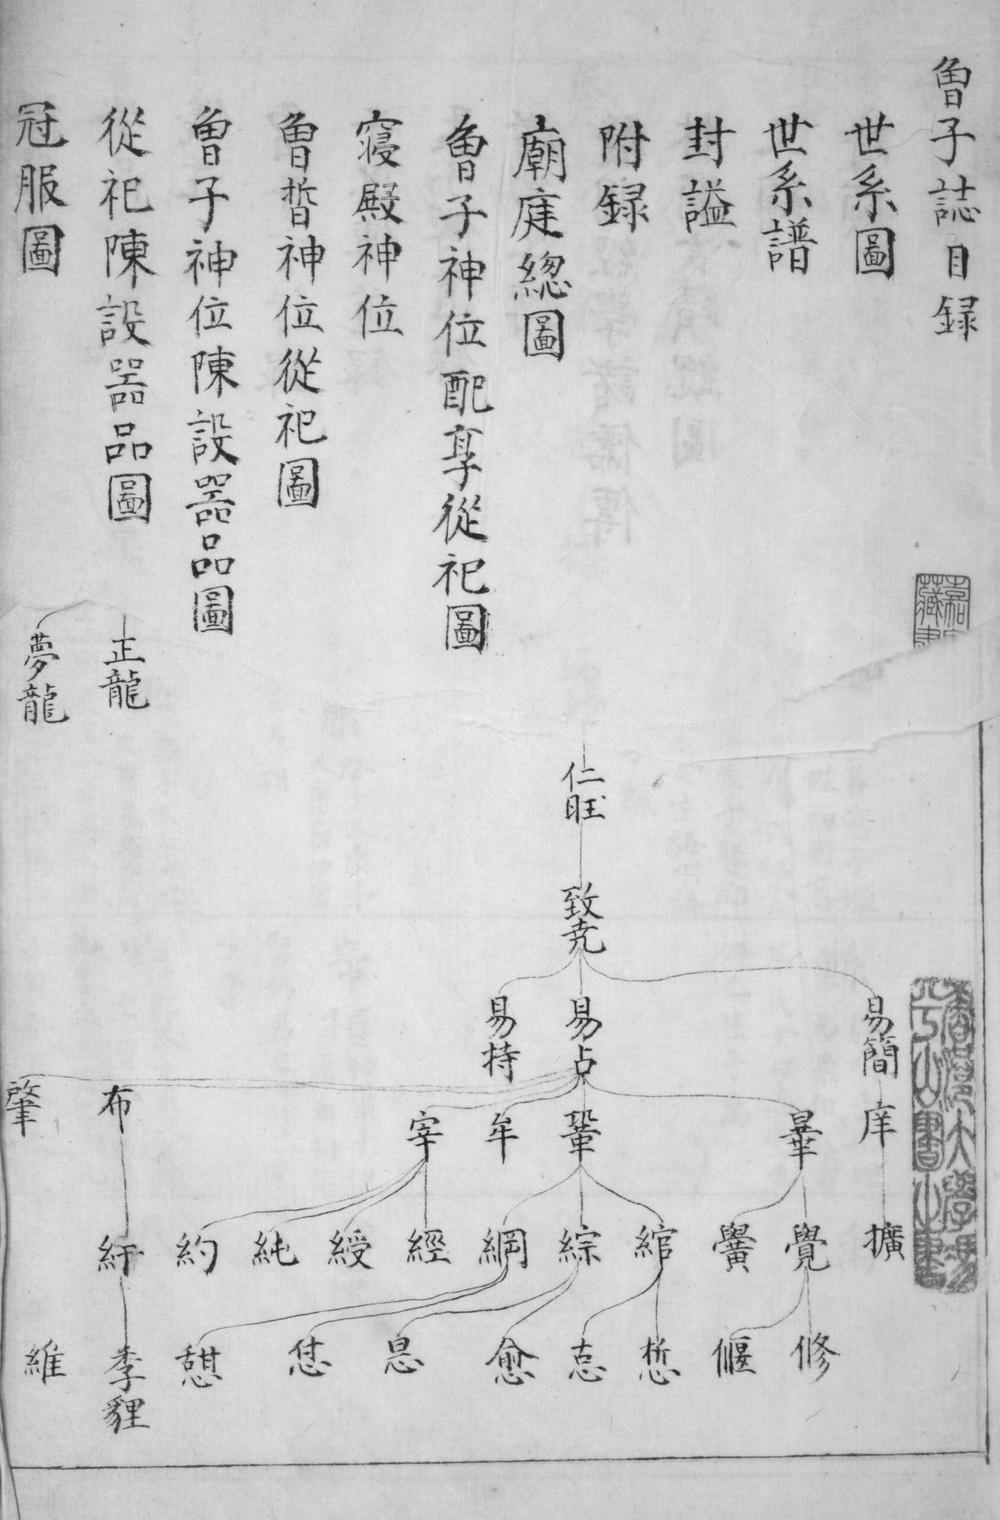 曾子誌目録
世系圖
世系譜
封謚
附録
廟庭總圖
曾子神位配享從祀圖
寝殿神位
曾晳神位從祀圖
曾子神位陳設器品圖
從祀陳設器品圖
冠服圖
正龍
夢龍
仁旺
致尭
易簡
易占
易持
庠
曅
鞏
牟
宰
布
肇
擴
覺
黌
綰
綜
綱
經
綬
純
約
紆
修
偃
悊
愈
息
憇
李貍
維